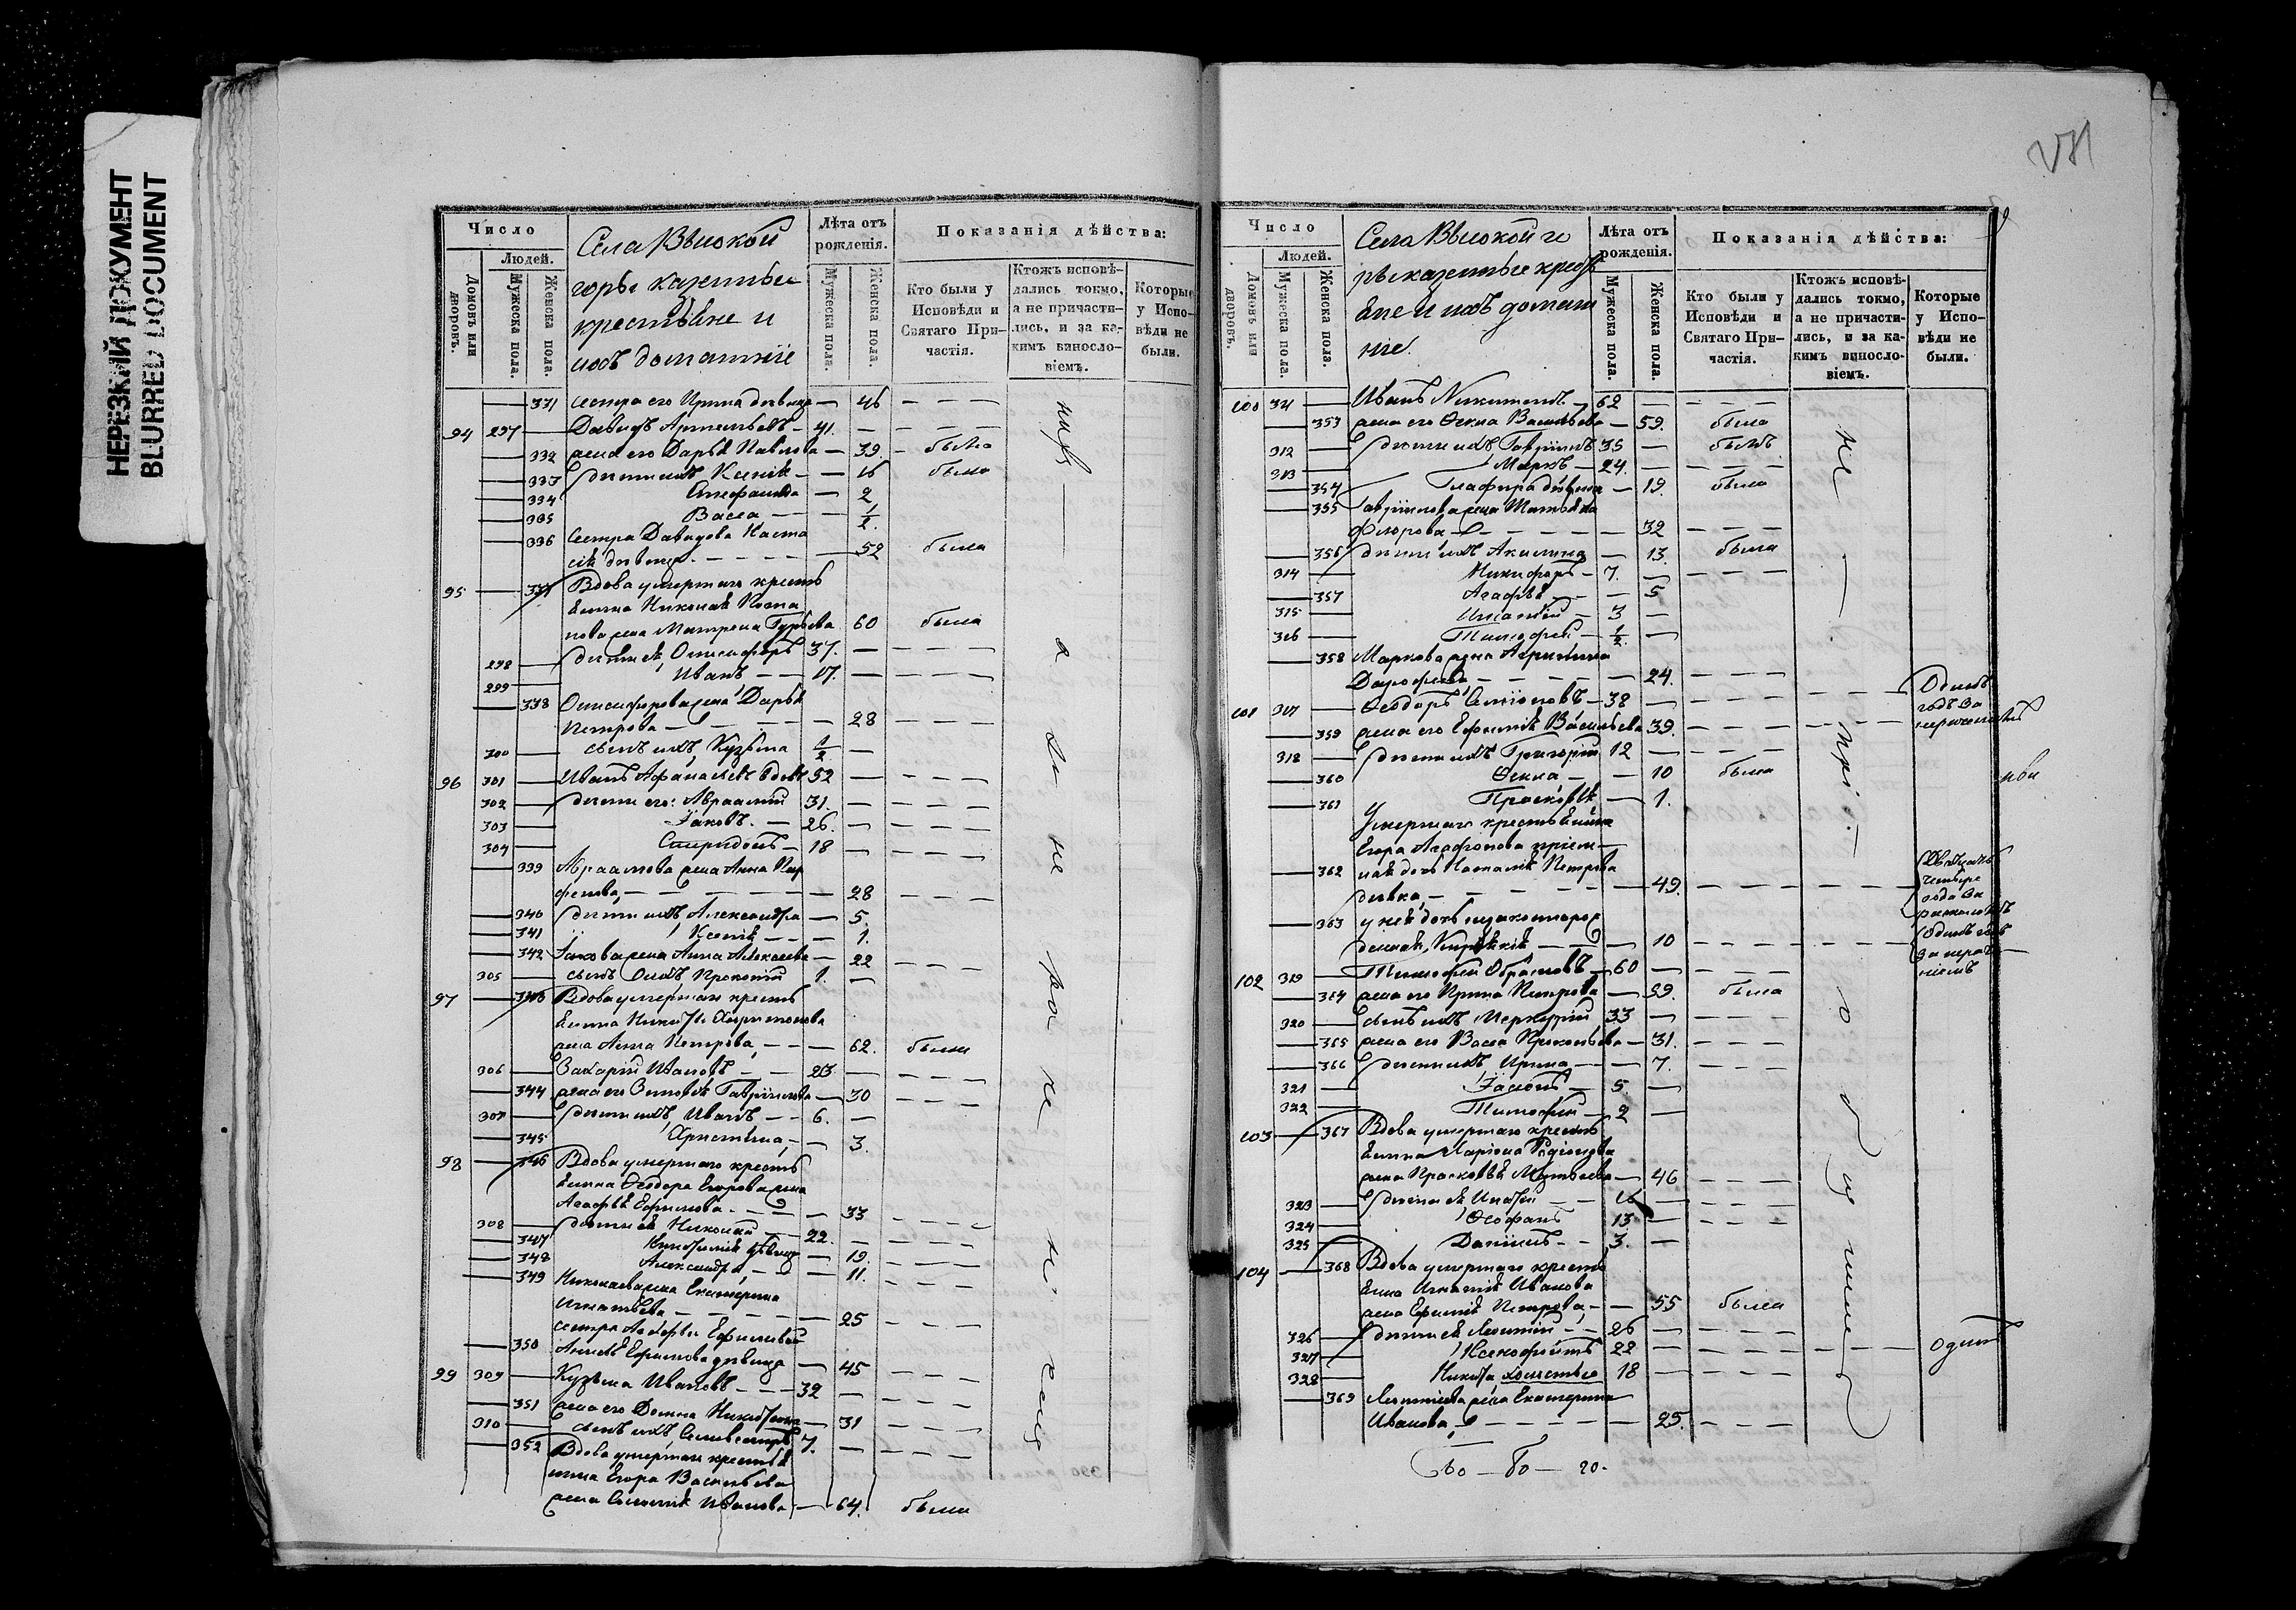 НЕРЕЗКИЙ ДОКУМЕНТ
BLURRED DOCUMENT
Число
Людей.
Домовъ или дворовъ.
Мужеска пола.
Женска пола.
Села Высокой
горы казенные
крестьяне и
ихъ домашніе
Лѣта отъ рожденія.
Мужеска пола.
Женска пола.
Показанія дѣйства:
Кто были у Исповѣди и Святаго Причастія.
Ктожъ исповѣдались токмо, а не причастились, и за какимъ винословіемъ.
Которые у Исповѣди не были.
331 сестра его Ирина дѣвица — 46
94 297 Давидъ Артемьевъ — 41.
332 жена его Дарья Павлова — 39. была
333 дѣти ихъ Ксенія — 16 была
334 Стефанида — 2
335 Васса — 1/2.
336 Сестра Давидова Наста
сія дѣвица — 52 была
95 337 Вдова умершаго кресть
янина Николая
жена Матрена Гурьева 60 была
298 дѣти ея, Онисифоръ 37.
299 Иванъ — 17.
338 Онисифорова жена Дарья
Петрова — 28
300 сынъ ихъ, Кузьма 1/2
96 301 Иванъ Афанасьевъ вдовъ 52
302 дѣти его: Авраамій 31.
303 Іаковъ. — 26.
304 Спиридонъ — 18
339 Авраамова жена Анна Пар
фенова, — 28
340 дѣти ихъ Александра — 5.
341 Ксенія — 1.
342 Іаковажена Анна Алексеева — 22
305 сынъ ихъ Прокопій 1.
97 343 Вдова умершаго кресть
янина Никиты Харитонова
жена Анна Петрова, — 62. была
306 Захарій Ивановъ — 23
344 жена его Зиновія Гавріилова — 30
307 дѣти ихъ, Иванъ — 6.
345 Христина, — 3.
98 346 Вдова умершаго кресть
янина Ѳеодора Егорова жена
Агафья Ефимова. — 33
308 дѣти ея Николай — 22.
347 дѣвица — 19.
348 Александра, — 11.
349 Николаева жена Екатерина
Игнатьева — 25
сестра Агафьи Ефимовой
350 Ефимова дѣвица — 45
99 309 Кузьма Ивановъ — 32
351 жена его Домна Никитина — 31
310 сынъ ихъ Селивестръ 7.
352 Вдова умершаго крестья
нина Егора Васильева
жена Соломія Иванова — 64. была
Число
Людей.
Домовъ или дворовъ.
Мужеска пола.
Женска пола.
Села Высокой го
ры казенные кресть
яне и ихъ домаш
ніе.
Лѣта отъ рожденія.
Мужеска пола.
Женска пола.
Показанія дѣйства:
Кто были у Исповѣди и Святаго Причастія.
Ктожъ исповѣдались токмо, а не причастились, и за какимъ винословіемъ.
Которые у Исповѣди не были.
100 311 Иванъ Никитинъ — 62
353 жена его Ѳекла Васильева — 59. была
312 дѣти ихъ Гавріилъ 35 былъ
313 Маркъ — 24.
354 Глафира дѣвица — 19. была
355 Гавріилова жена Матрена
Флорова, — 32
356 дѣти ихъ Акилина — 13. была
314 Никифоръ — 7.
357 Агафья — 5
315 Игнатій — 3
316 Тимофей — 1/2.
358 Маркова жена Агрипина
Дорофеева, — 24.
101 317 Ѳеодоръ Симіоновъ — 38 Одинъ годъ за нераченіемъ
359 жена его Ефимія Васильева 39.
318 дѣти ихъ Григорій 12
360 Ѳекла — 10 была
361 Прасковья — 1.
Умершаго крестьянина
Егора Агафонова пріем
362 ная дочь Наталія Петрова
дѣвка, — 49. четыре года за расколомъ
363 у нея дочь незаконнорож
денная, — 10 Одинъ годъ за нераченіемъ
102 319 Тимофей Абрамовъ — 60
364 жена его Ирина Петрова — 59. была
320 сынъ ихъ Меркурій 33
365 жена его Васса Прокопьева — 31.
366 дѣти ихъ Ирина — 7.
321 Іасонъ — 5
322 Тимофей — 2
103 367 Вдова умершаго кресть
янина Ларіона Родіонова
жена Прасковья Матвеева — 46
323 дѣти ея 16
324 Ѳеофанъ 13
325 Даніилъ — 3.
104 368 Вдова умершаго кресть
янина Игнатія Иванова
жена Ефимія Петрова, — 55 была
326 дѣти ея Леонтій — 26
327 Ксенофонтъ 22 одинъ
328 Никита холостые 18
369 Леонтіева жена Екатерина
Иванова, — 25.